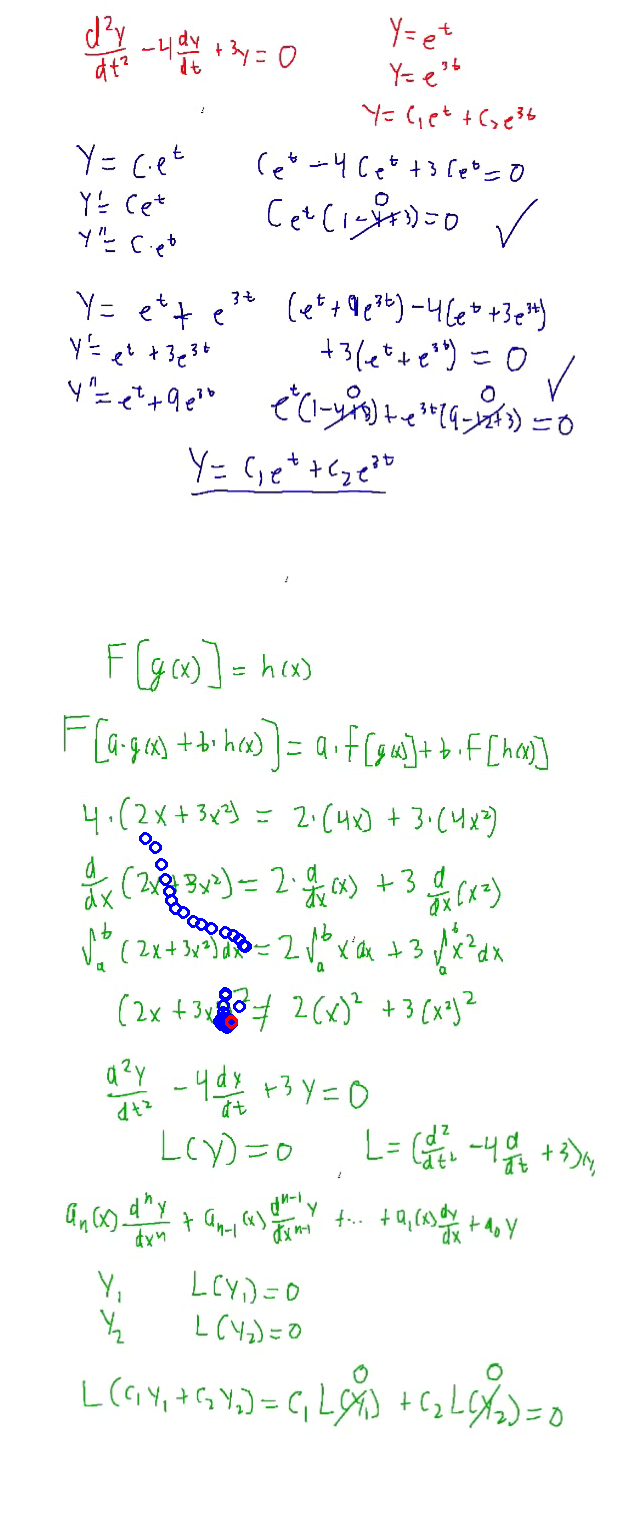 d²y/dt² - 4 dy/dt + 3y = 0
y = e^t
y = e^3t
y = c₁e^t + c₂e^3t
y = c·e^t
Ce^t - 4Ce^t + 3Ce^t = 0
y' = Ce^t
Ce^t(1-4+3) = 0 ✓
0
y'' = C·e^t
y = e^t + e^3t
(e^t + 9e^3t) - 4(e^t + 3e^3t)
y' = e^t + 3e^3t
+3(e^t + e^3t) = 0 ✓
y'' = e^t + 9e^3t
0 0
e^t(1-4+3) + e^3t(9-12+3) = 0
y = c₁e^t + c₂e^3t
F[g(x)] = h(x)
F[a·g(x) + b·h(x)] = a·F[g(x)] + b·F[h(x)]
4·(2x + 3x²) = 2·(4x) + 3·(4x²)
d/dx (2x + 3x²) = 2·d/dx(x) + 3 d/dx(x²)
∫_a^b (2x + 3x²)dx = 2∫_a^b x dx + 3∫_a^b x² dx
(2x + 3x ² ≠ 2(x)² + 3(x²)²
d²y/dt² - 4 dy/dt + 3y = 0
L(y) = 0
L = (d²/dt² - 4 d/dt + 3)
aₙ(x) dⁿy/dxⁿ + aₙ₋₁(x) dⁿ⁻¹y/dxⁿ⁻¹ + ... + a₁(x) dy/dx + a₀y
y₁ L(y₁) = 0
y₂ L(y₂) = 0
0 0
L(c₁y₁ + c₂y₂) = c₁L(y₁) + c₂L(y₂) = 0